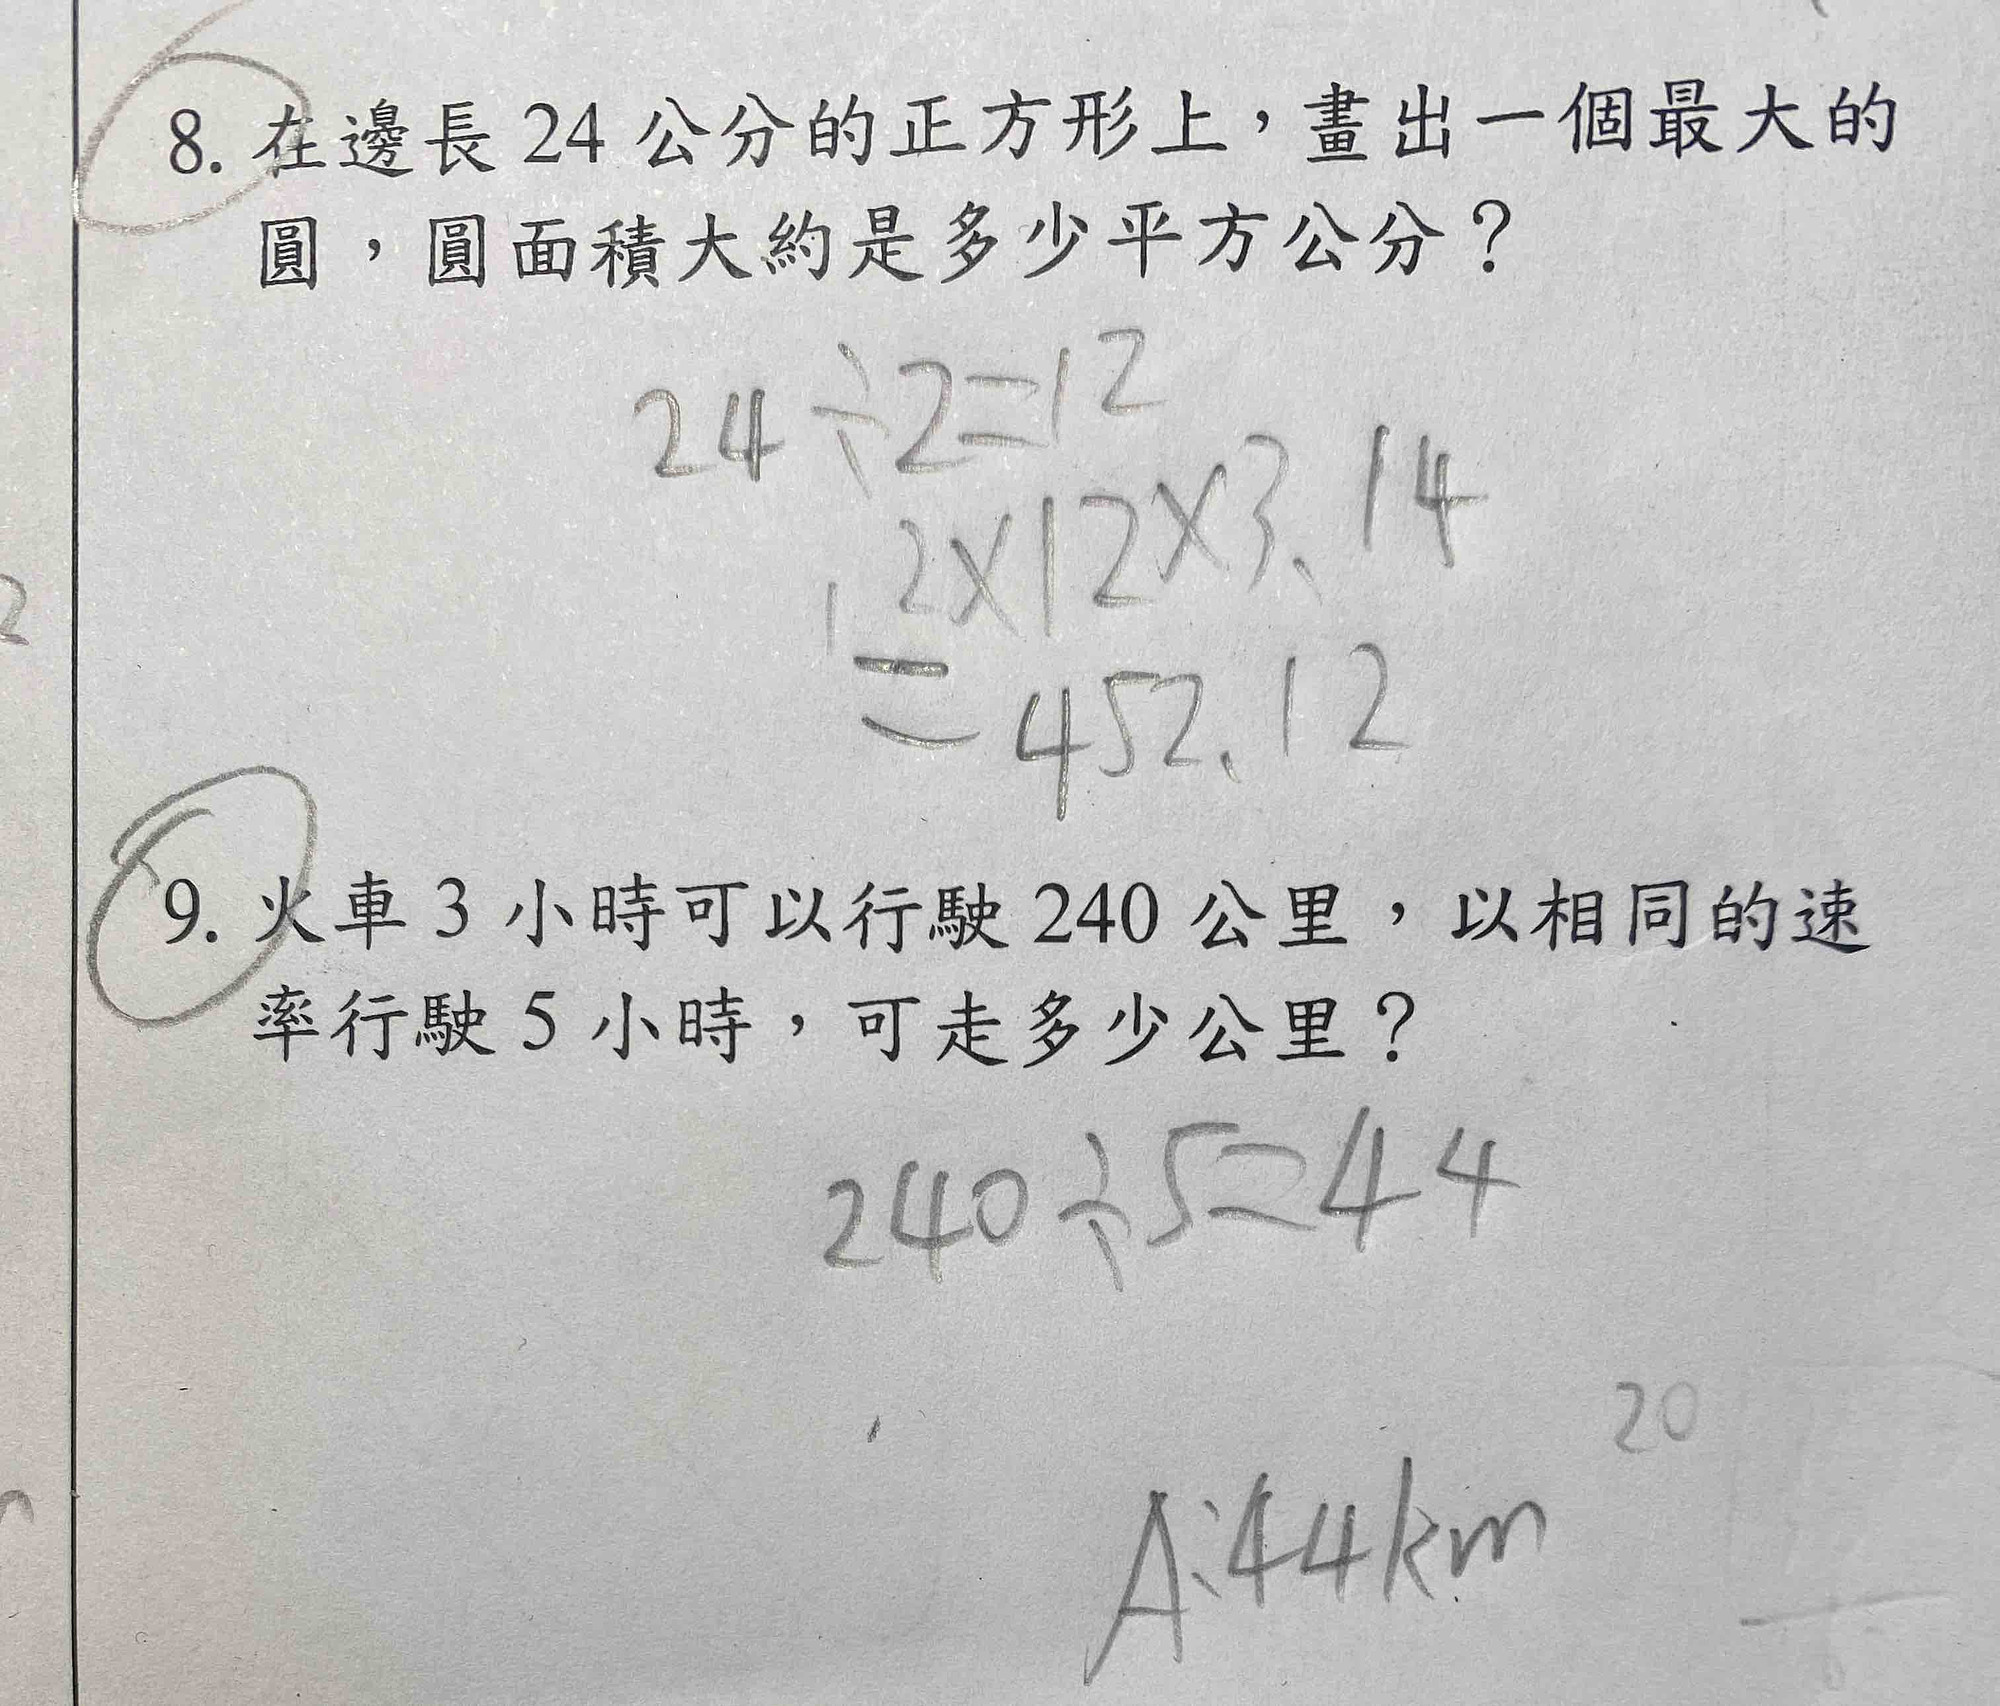 8. 在邊長 24 公分的正方形上，畫出一個最大的
圓，圓面積大約是多少平方公分？
24÷2=12
12×12×3.14
=452.12
9. 火車 3 小時可以行駛 240 公里，以相同的速
率行駛 5 小時，可走多少公里？
240÷5=44
20
A:44km
2